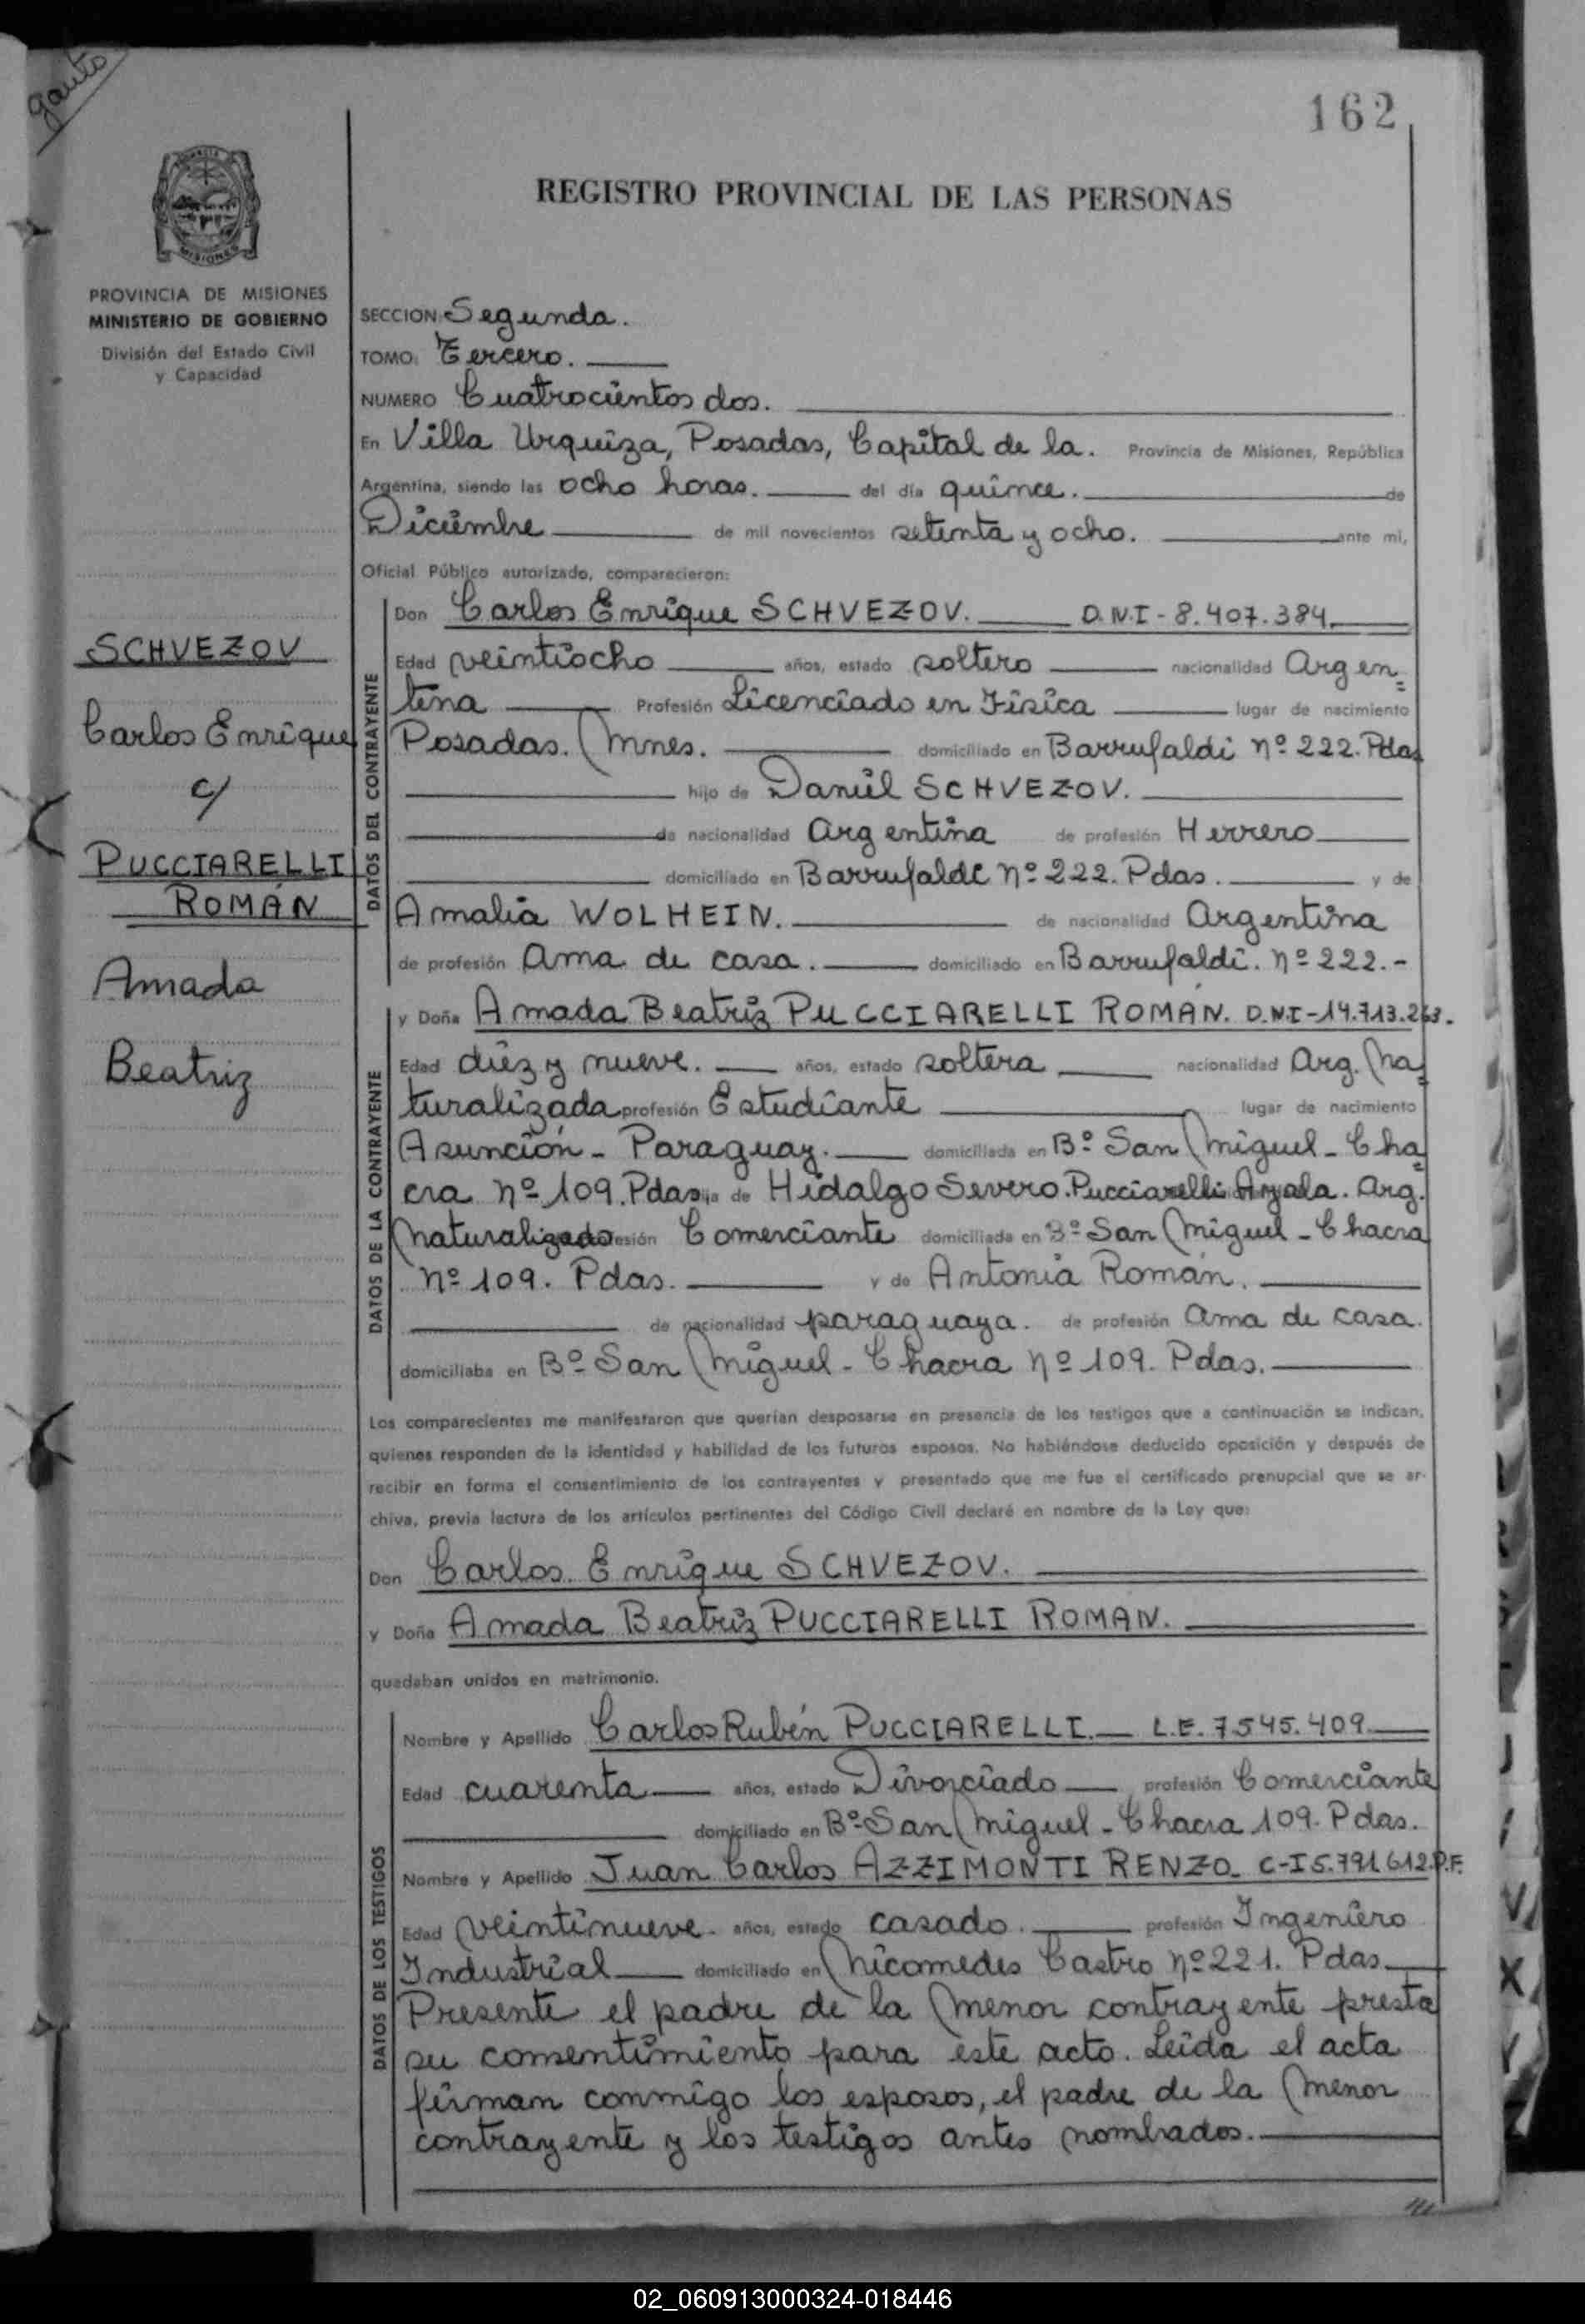 gauto
162
PROVINCIA DE
MISIONES
REGISTRO PROVINCIAL DE LAS PERSONAS
PROVINCIA DE MISIONES
MINISTERIO DE GOBIERNO
División del Estado Civil
y Capacidad
SCHVEZOV
Carlos Enrique
c/
PUCCIARELLI
ROMÁN
Amada
Beatriz
SECCION: Segunda.
TOMO: Tercero.
NUMERO Cuatrocientos dos.
En Villa Urquiza, Posadas, Capital de la. Provincia de Misiones, República
Argentina, siendo las ocho horas. del día quince. de
Diciembre de mil novecientos setenta y ocho. ante mi,
Oficial Público autorizado, comparecieron:
DATOS DEL CONTRAYENTE
Don Carlos Enrique SCHVEZOV. D.N.I - 8.407.384.
Edad veintiocho años, estado soltero nacionalidad Argen=
tina Profesión Licenciado en Física lugar de nacimiento
Posadas. Mnes. domiciliado en Barrufaldi nº 222. Pdas
hijo de Daniel SCHVEZOV.
de nacionalidad Argentina de profesión Herrero
domiciliado en Barrufaldi nº 222. Pdas. y de
Amalia WOLHEIN. de nacionalidad Argentina
de profesión Ama de casa. domiciliado en Barrufaldi. nº 222.-
DATOS DE LA CONTRAYENTE
y Doña Amada Beatriz PUCCIARELLI ROMÁN. D.N.I-14.713.263.
Edad diez y nueve. años, estado soltera nacionalidad Arg. Na=
turalizada profesión Estudiante lugar de nacimiento
Asunción - Paraguay. domiciliada en Bº San Miguel - Cha=
cra nº 109. Pdas. hija de Hidalgo Severo Pucciarelli Ayala. Arg.
Naturalizado profesión Comerciante domiciliada en Bº San Miguel - Chacra
nº 109. Pdas. y de Antonia Román.
de nacionalidad paraguaya. de profesión Ama de casa.
domiciliaba en Bº San Miguel - Chacra nº 109. Pdas.
Los comparecientes me manifestaron que querían desposarse en presencia de los testigos que a continuación se indican,
quienes responden de la identidad y habilidad de los futuros esposos. No habiéndose deducido oposición y después de
recibir en forma el consentimiento de los contrayentes y presentado que me fue el certificado prenupcial que se ar-
chiva, previa lectura de los artículos pertinentes del Código Civil declaré en nombre de la Ley que:
Don Carlos Enrique SCHVEZOV.
y Doña Amada Beatriz PUCCIARELLI ROMAN.
quedaban unidos en matrimonio.
DATOS DE LOS TESTIGOS
Nombre y Apellido Carlos Rubén PUCCIARELLI. L.E. 7.545.409.
Edad cuarenta años, estado Divorciado profesión Comerciante
domiciliado en Bº San Miguel - Chacra 109. Pdas.
Nombre y Apellido Juan Carlos AZZIMONTI RENZO. C-I 5.791.612.P.F.
Edad veintinueve. años, estado casado. profesión Ingeniero
Industrial domiciliado en Nicomedes Castro nº 221. Pdas.
Presente el padre de la menor contrayente presta
su consentimiento para este acto. Leída el acta
firman conmigo los esposos, el padre de la menor
contrayente y los testigos antes nombrados.
02_060913000324-018446